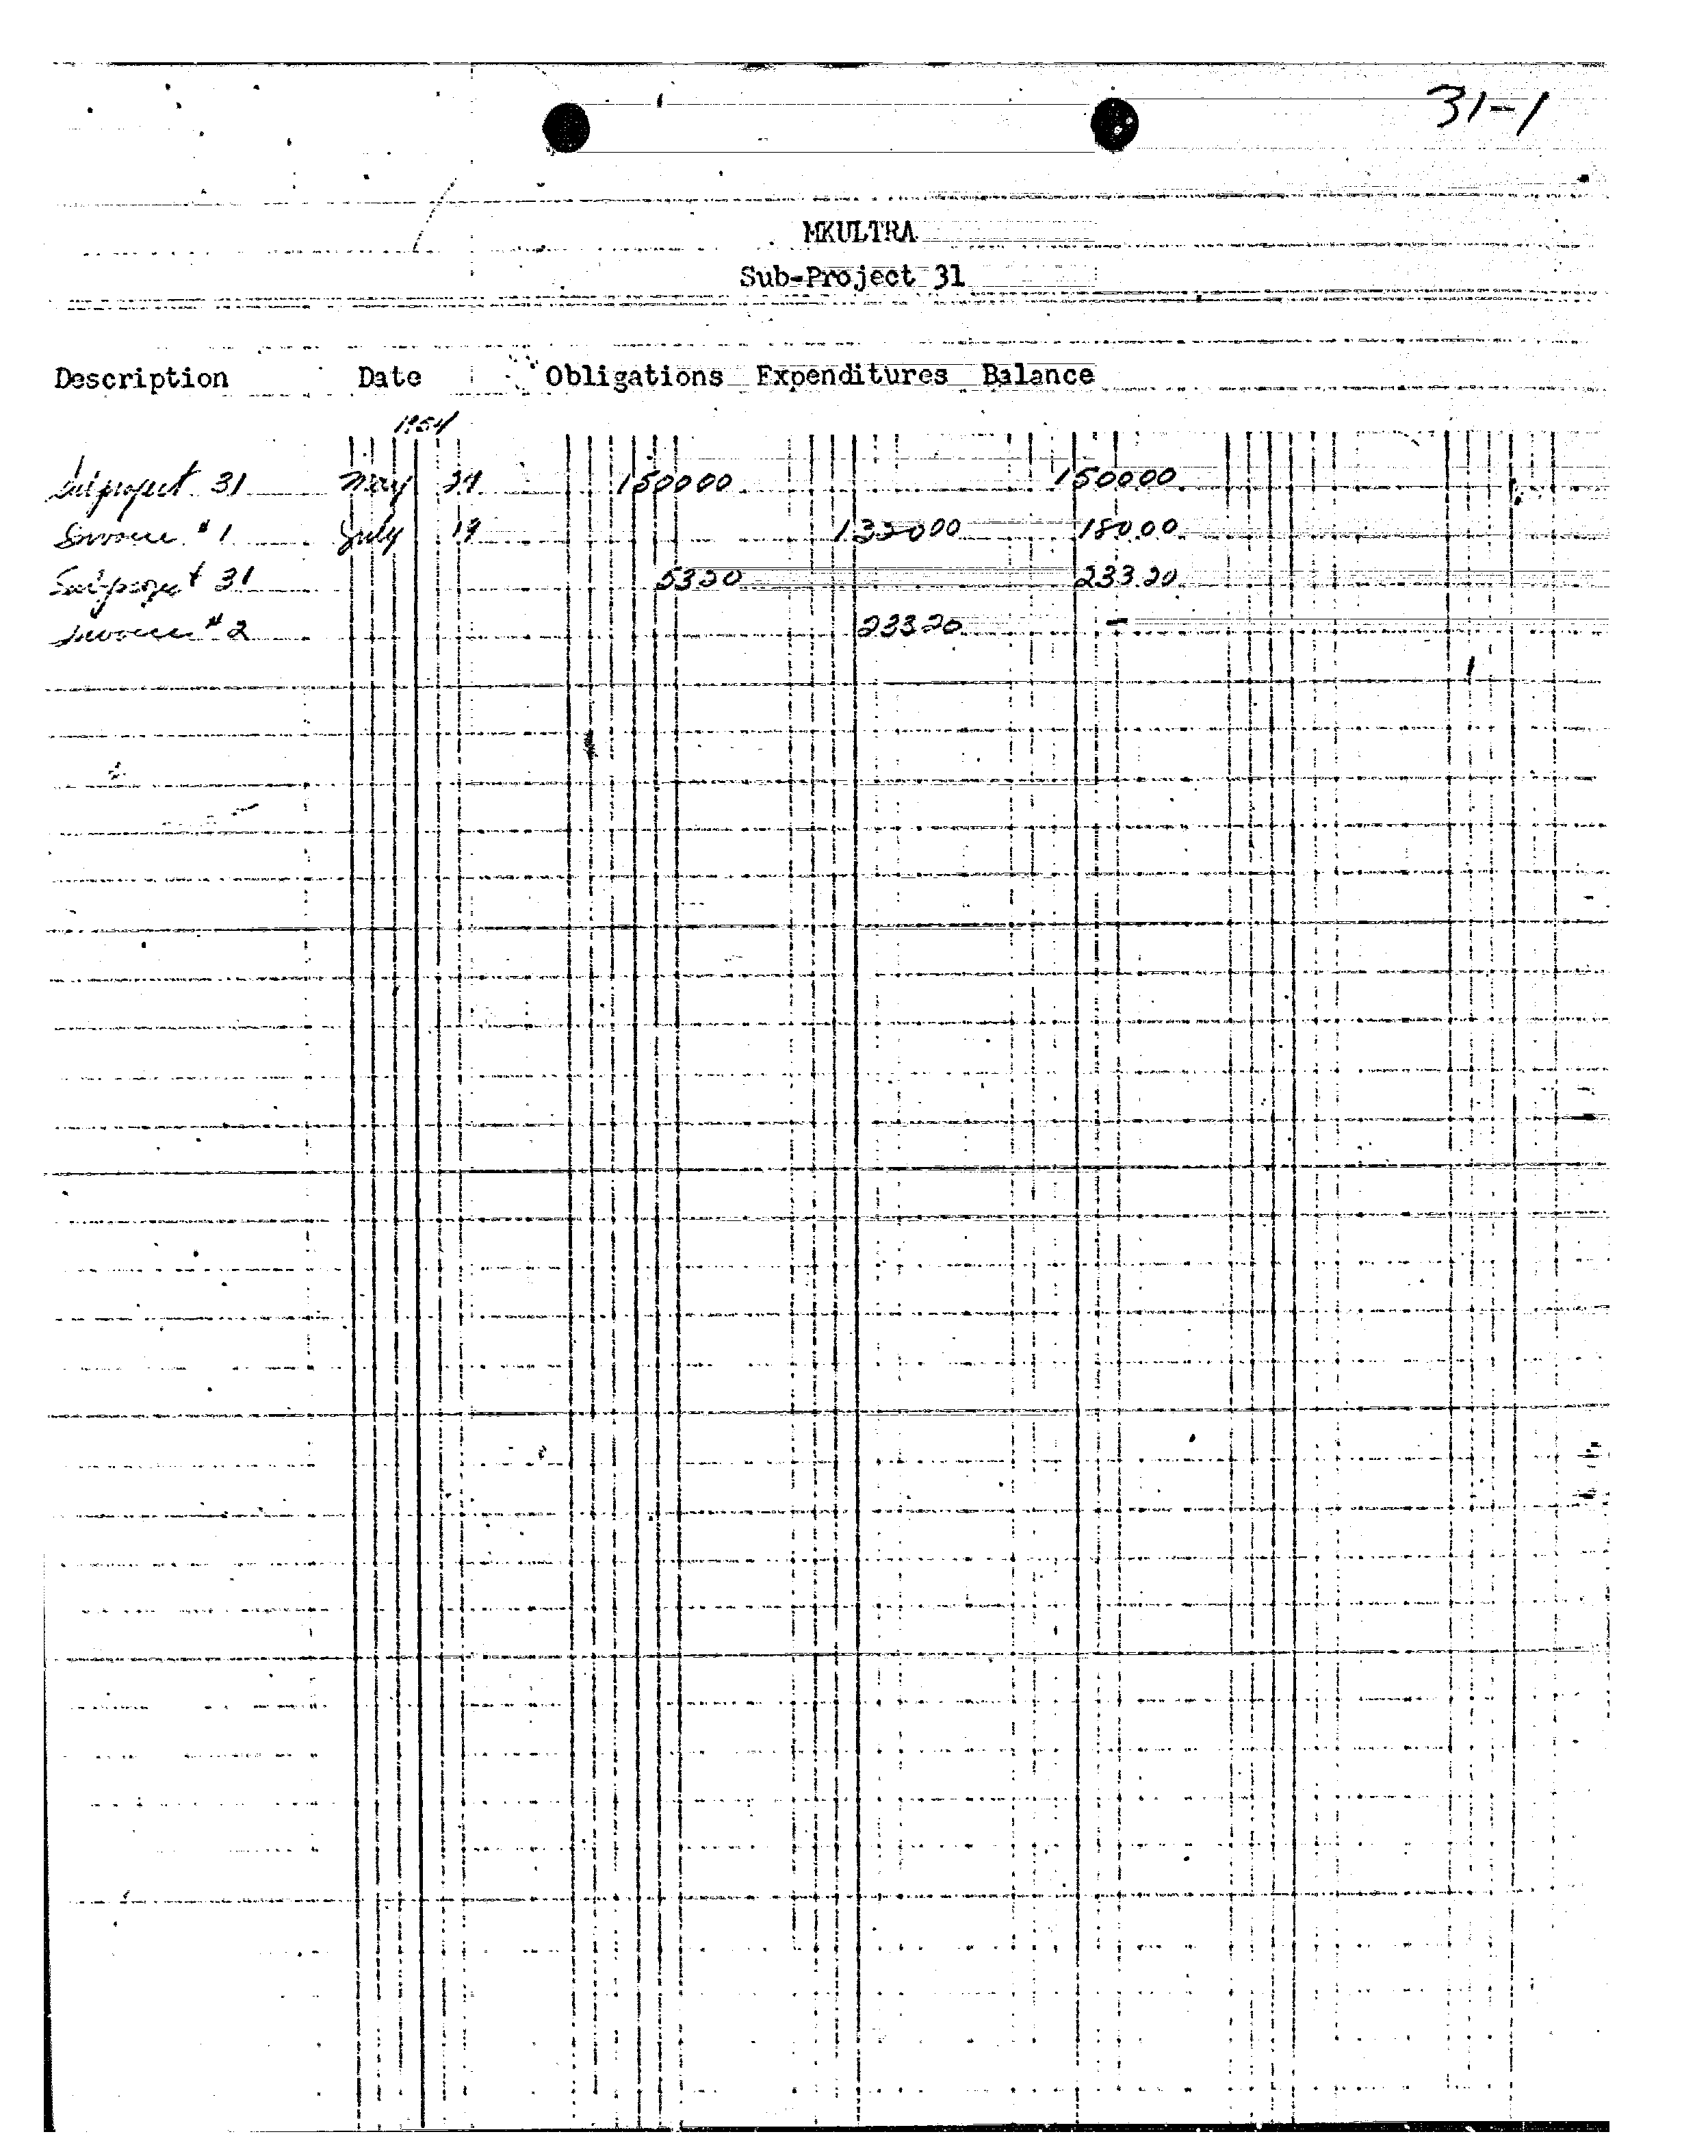 31-1
MKULTRA
Sub-Project 31
Description Date Obligations Expenditures Balance
1954
Subproject 31 May 24 150000 150000
Invoice #1 July 19 132000 180.00
Subproject 31 5320 233.20
Invoice #2 23320 -